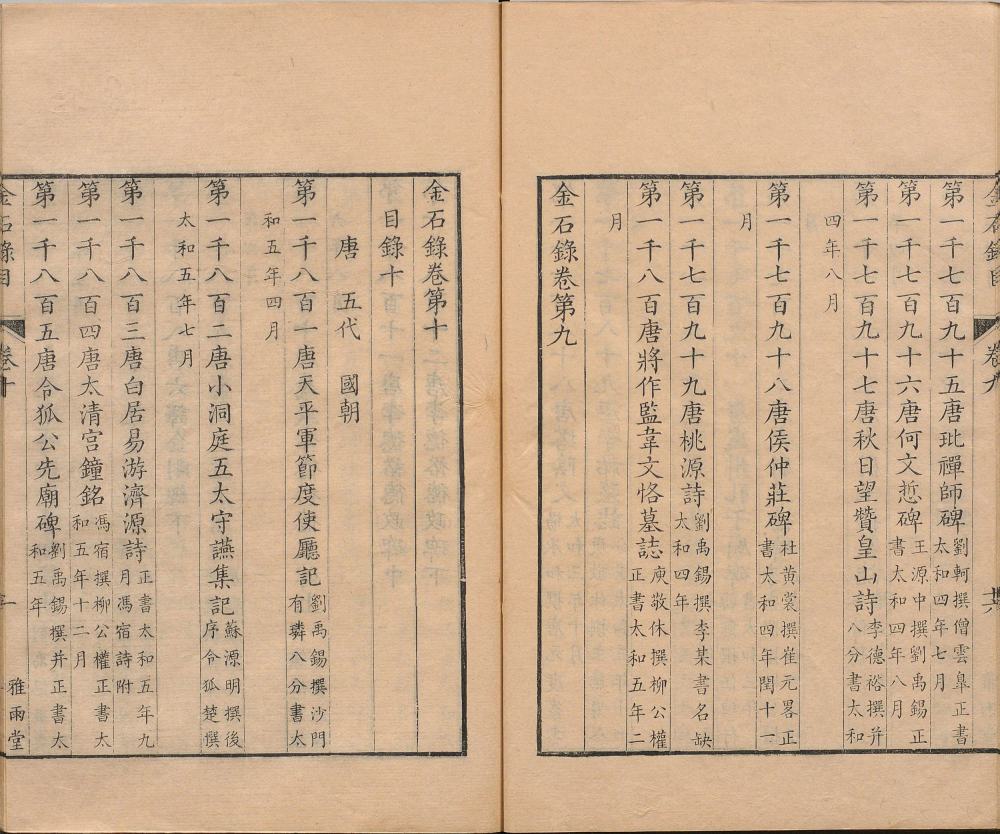 金石錄目　卷九　廿六
第一千七百九十五唐玭禪師碑劉軻撰僧雲皋正書太和四年七月
第一千七百九十六唐何文悊碑王源中撰劉禹錫正書太和四年八月
第一千七百九十七唐秋日望贊皇山詩李德裕撰并八分書太和
四年八月
第一千七百九十八唐侯仲莊碑杜黄裳撰崔元畧正書太和四年閏十一
月
第一千七百九十九唐桃源詩劉禹錫撰李某書名缺太和四年
第一千八百唐將作監韋文恪墓誌庾敬休撰柳公權正書太和五年二
月
金石錄卷第九
金石錄卷第十
目錄十
唐　五代　國朝
第一千八百一唐天平軍節度使廳記劉禹錫撰沙門有璘八分書太
和五年四月
第一千八百二唐小洞庭五太守讌集記蘇源明撰後序令狐楚撰
太和五年七月
第一千八百三唐白居易游濟源詩正書太和五年九月馮宿詩附
第一千八百四唐太清宮鐘銘馮宿撰柳公權正書太和五年十二月
第一千八百五唐令狐公先廟碑劉禹錫撰并正書太和五年
金石錄目　卷十　一　雅雨堂